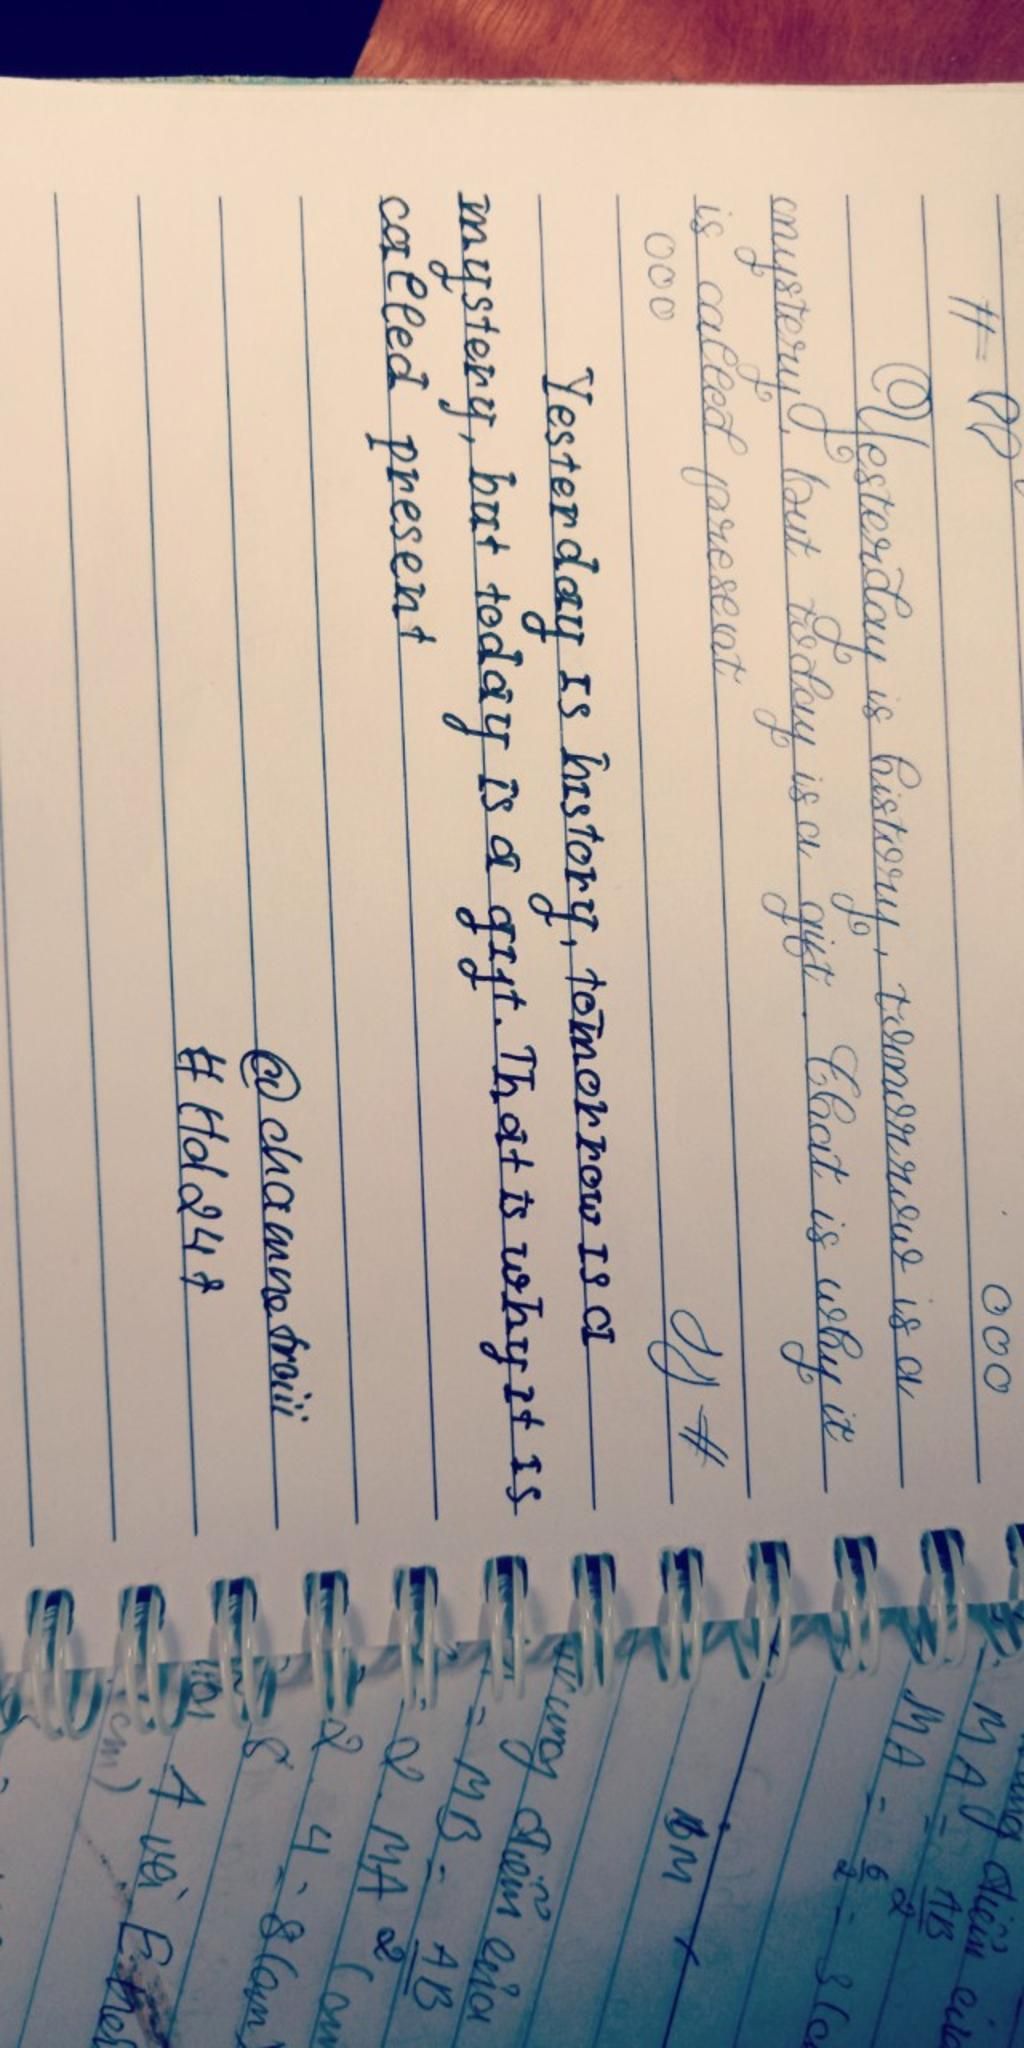 Yesterday is history, tomorrow is a
mystery, but today is a gift. That is why it
is called present
Yesterday is history, tomorrow is a
mystery, but today is a gift. That is why it is
called present
@chamnotraiii
#Hd247
MA = AB/2
MA = 6/2 = 3 (c
BM
điểm của
= MB = AB/2
= 2. MA
2. 4 = 8 (cm)
8
A và E
(cm)